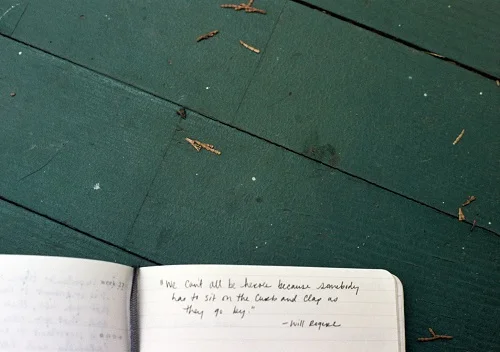 "We can't all be heroes because somebody
has to sit on the curb and clap as
they go by."
-Will Rogers